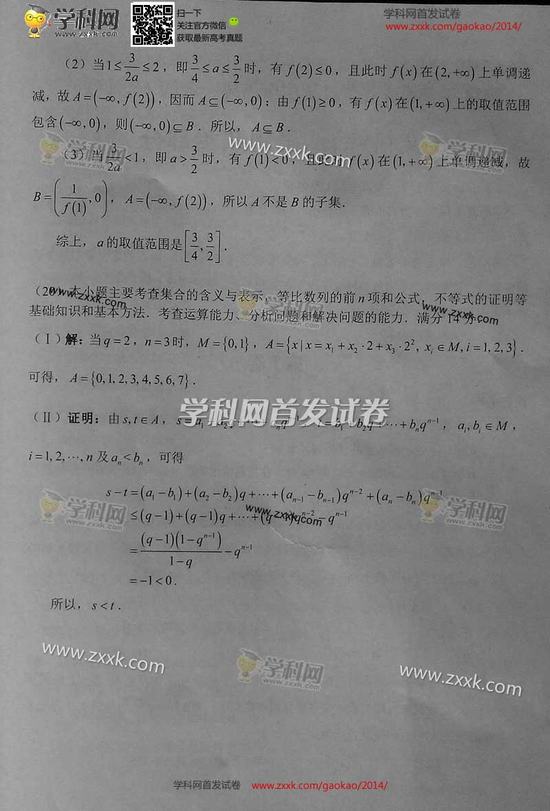 学科网 扫一下 学科网首发试卷
关注官方微信
获取最新高考真题 www.zxxk.com/gaokao/2014/
(2)当1≤3/(2a)≤2,即3/4≤a≤3/2时,有f(2)≤0,且此时f(x)在(2,+∞)上单调递
减,故A=(−∞,f(2)),因而A⊆(−∞,0);由f(1)≥0,有f(x)在(1,+∞)上的取值范围
包含(−∞,0),则(−∞,0)⊆B.所以,A⊆B.
(3)当3/(2a)<1,即a>3/2时,有f(1)<0,且此时f(x)在(1,+∞)上单调递减,故
B=(1/f(1),0),A=(−∞,f(2)),所以A不是B的子集.
综上,a的取值范围是[3/4,3/2].
(20)本小题主要考查集合的含义与表示、等比数列的前n项和公式、不等式的证明等
基础知识和基本方法.考查运算能力、分析问题和解决问题的能力.满分14分.
(Ⅰ)解:当q=2,n=3时,M={0,1},A={x|x=x₁+x₂·2+x₃·2²,xᵢ∈M,i=1,2,3}.
可得,A={0,1,2,3,4,5,6,7}.
学科网首发试卷
(Ⅱ)证明:由s,t∈A,s=a₁ a₂ qⁿ⁻¹ =b₁ b₂q+⋯+bₙqⁿ⁻¹,aᵢ,bᵢ∈M,
i=1,2,⋯,n及aₙ<bₙ,可得
s−t=(a₁−b₁)+(a₂−b₂)q+⋯+(aₙ₋₁−bₙ₋₁)qⁿ⁻²+(aₙ−bₙ)qⁿ⁻¹
≤(q−1)+(q−1)q+⋯+(q−1)qⁿ⁻²−qⁿ⁻¹
=(q−1)(1−qⁿ⁻¹)/(1−q)−qⁿ⁻¹
=−1<0.
所以,s<t.
www.zxxk.com 学科网 www.zxxk.com
学科网首发试卷 www.zxxk.com/gaokao/2014/